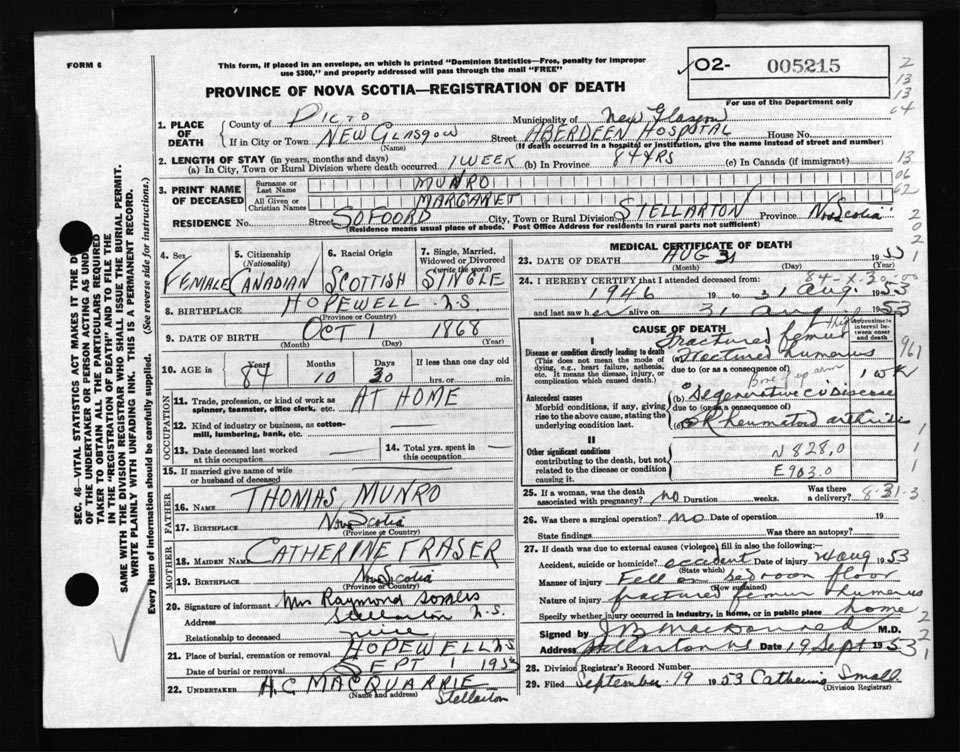 FORM 6
This form, if placed in an envelope, on which is printed "Dominion Statistics—Free, penalty for improper
use $300," and properly addressed will pass through the mail "FREE"
02- 005215
For use of the Department only
PROVINCE OF NOVA SCOTIA—REGISTRATION OF DEATH
2
13
13
64
13
06
62
2
0
2
1. PLACE OF DEATH
County of PICTO Municipality of New Glasgow
If in City or Town NEW GLASGOW (Name) Street ABERDEEN HOSPOTAL House No.
(If death occurred in a hospital or institution, give the name instead of street and number)
2. LENGTH OF STAY (in years, months and days)
(a) In City, Town or Rural Division where death occurred 1 WEEK (b) In Province 84 YRS (c) In Canada (if immigrant)
3. PRINT NAME OF DECEASED
Surname or Last Name MUNRO
All Given or Christian Names MARGARET
RESIDENCE No. Street SO FOORD City, Town or Rural Division STELLARTON Province Nova Scotia
(Residence means usual place of abode. Post Office Address for residents in rural parts not sufficient)
4. Sex FEMALE
5. Citizenship (Nationality) CANADIAN
6. Racial Origin SCOTTISH
7. Single, Married, Widowed or Divorced (write the word) SINGLE
8. BIRTHPLACE HOPEWELL N.S.
(Province or Country)
9. DATE OF BIRTH OCT 1 1868
(Month) (Day) (Year)
10. AGE in Years 84 Months 10 Days 30 If less than one day old hrs. or min.
OCCUPATION
11. Trade, profession, or kind of work as
spinner, teamster, office clerk, etc. AT HOME
12. Kind of industry or business, as cotton-
mill, lumbering, bank, etc.
13. Date deceased last worked at this occupation
14. Total yrs. spent in this occupation
15. If married give name of wife
or husband of deceased
FATHER
16. Name THOMAS MUNRO
17. Birthplace Nova Scotia
(Province or Country)
MOTHER
18. MAIDEN NAME CATHERINE FRASER
19. Birthplace Nova Scotia
(Province or Country)
20. Signature of informant Mrs Raymond
Address Stellarton N.S.
Relationship to deceased niece
21. Place of burial, cremation or removal HOPEWELL N.S
Date of burial or removal SEPT 1 1953
22. UNDERTAKER A.C MACQUARRIE
(Name and address) Stellarton
MEDICAL CERTIFICATE OF DEATH
23. DATE OF DEATH AUG 31 1953
(Month) (Day) (Year)
24. I HEREBY CERTIFY that I attended deceased from:
1946 19 to 31 Aug. 1953
and last saw her alive on 31 Aug 1953
CAUSE OF DEATH
Approximate interval between onset and death
I
Disease or condition directly leading to death
(This does not mean the mode of dying, e.g., heart failure, asthenia, etc. It means the disease, injury, or complication which caused death.)
Fractured femur Thigh
(a) Fractured humerus
due to (or as a consequence of) Bone of up arm 1 WK
961
Antecedent causes
Morbid conditions, if any, giving rise to the above cause, stating the underlying condition last.
(b) Degenerative CV Disease
due to (or as a consequence of)
(c) Rheumatoid arthritis
II
Other significant conditions
contributing to the death, but not related to the disease or condition causing it.
N 828.0
E 903.0
25. If a woman, was the death associated with pregnancy? no Duration weeks. Was there a delivery? 8-31-3
26. Was there a surgical operation? no Date of operation 19
State findings Was there an autopsy?
27. If death was due to external causes (violence) fill in also the following:—
Accident, suicide or homicide? accident (State which) Date of injury Aug 1953
Manner of injury Fell on bedroom floor
(How sustained)
Nature of injury fractured femur humerus
Specify whether injury occurred in industry, in home, or in public place home
Signed by J B MacDonald M.D.
Address Stellarton NS Date 19 Sept 1953
28. Division Registrar's Record Number
29. Filed September 19 1953 Catherine Small
(Division Registrar)
SEC. 46—VITAL STATISTICS ACT MAKES IT THE
OF THE UNDERTAKER OR PERSON ACTING AS
TAKER TO OBTAIN ALL THE PARTICULARS REQUIRED
IN THE "REGISTRATION OF DEATH" AND TO FILE THE
SAME WITH THE DIVISION REGISTRAR WHO SHALL ISSUE THE BURIAL PERMIT.
WRITE PLAINLY WITH UNFADING INK. THIS IS A PERMANENT RECORD.
Every item of information should be carefully supplied. (See reverse side for instructions.)